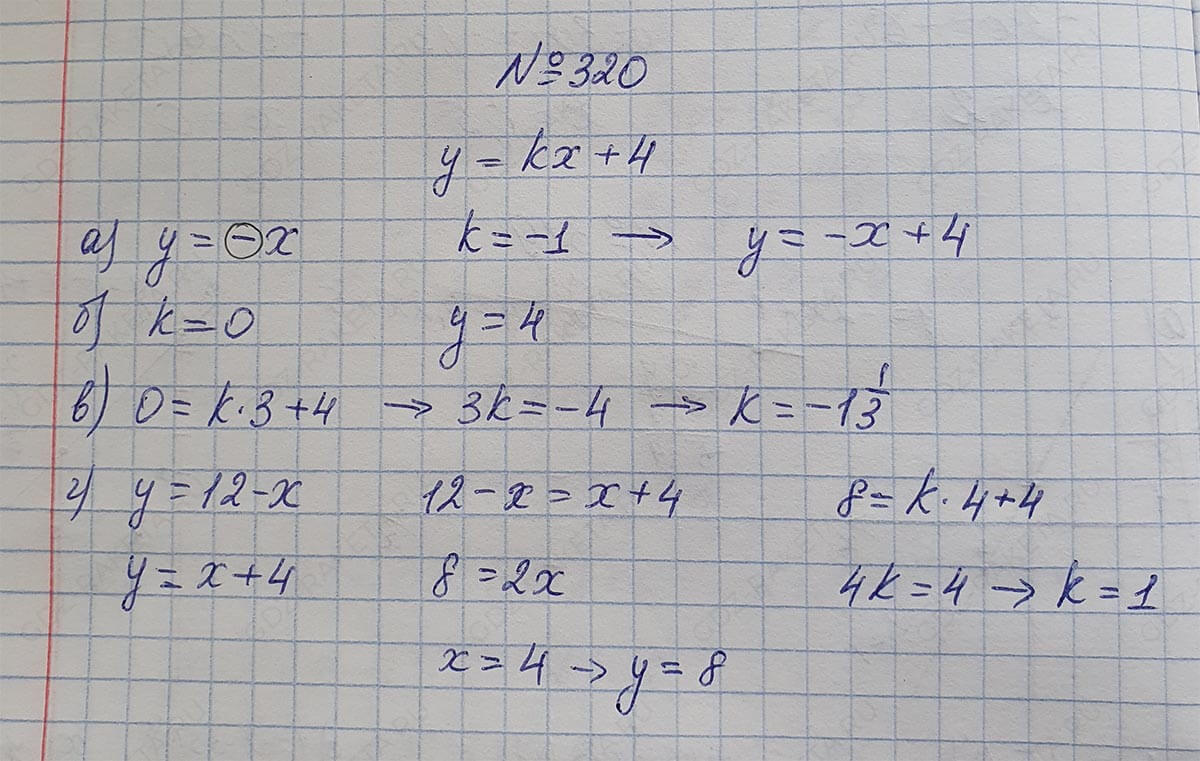 №320
y = kx + 4
а) y = -x k = -1 → y = -x + 4
б) k = 0 y = 4
в) 0 = k · 3 + 4 → 3k = -4 → k = -1 1/3
г) y = 12 - x 12 - x = x + 4 8 = k · 4 + 4
y = x + 4 8 = 2x 4k = 4 → k = 1
x = 4 → y = 8